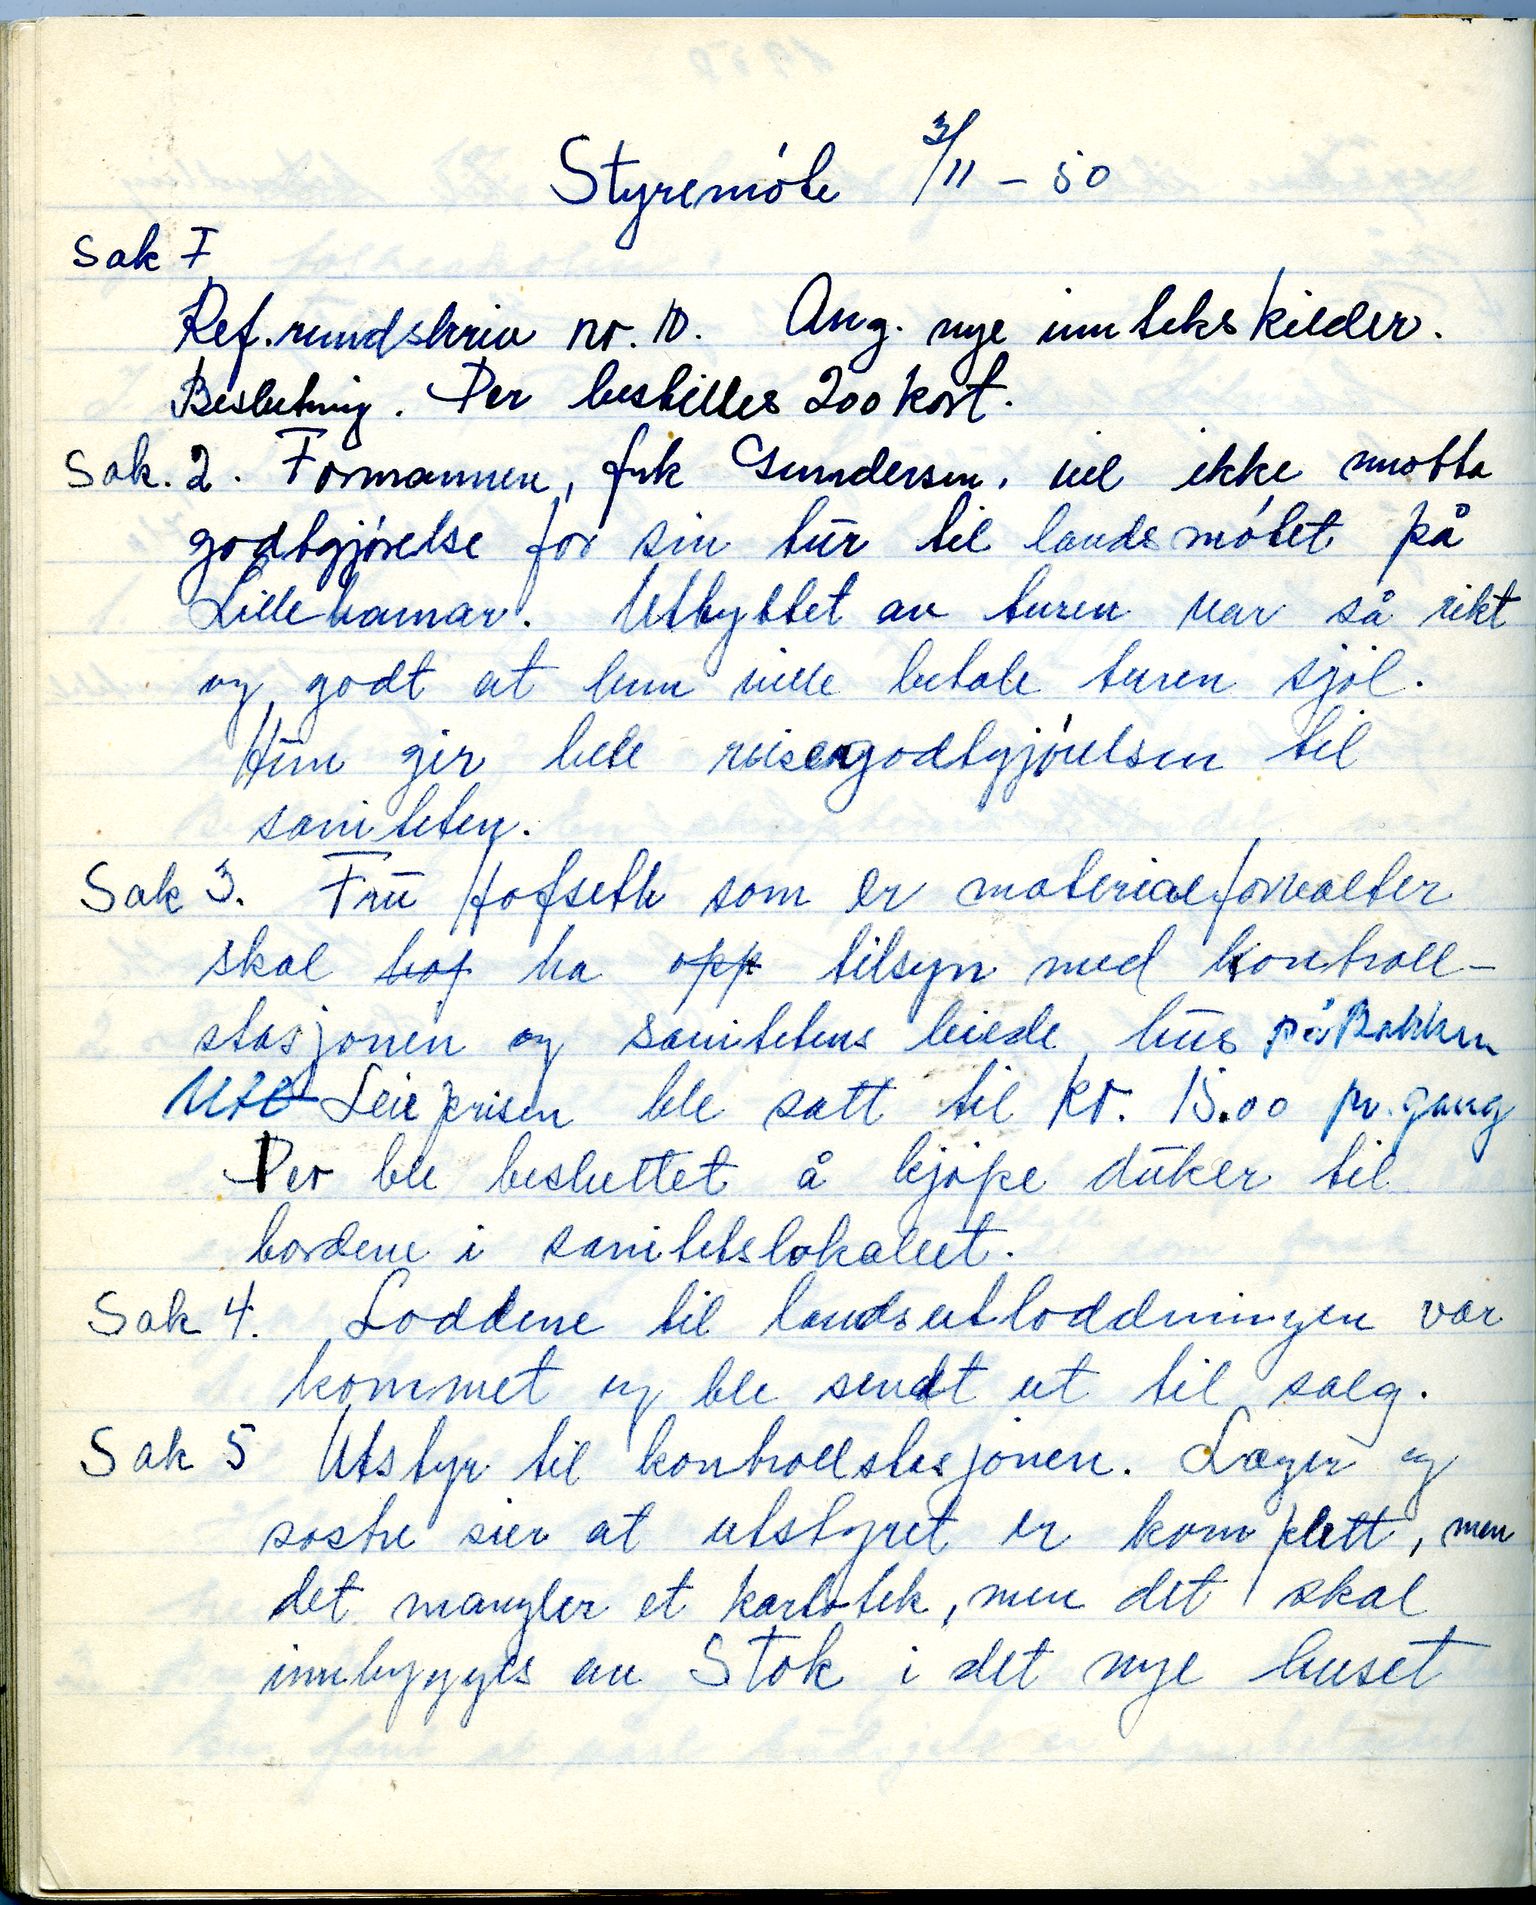 Styremóte 3/11 - 50
Sak I
Ref. rundskriv nr. 10. Ang. nye inntekskilder.
Beslutning. Der bestilles 200 kort.
Sak. 2. Formannen, frk Gundersen, vil ikke motta
godtgjórelse for sin tur til landsmótet på
Lillehamar. Utbyttet av turen var så rikt
og godt at hun ville betale turen sjól.
Hun gir hele reisegodtgjórelsen til
saniteten.
Sak 3. Fru Hofseth som er materialforvalter
skal ha opp tilsyn med kontroll-
stasjonen og sanitetens leiede hus på Bakken
Leieprisen ble satt til kr. 15.00 pr. gang
Der ble besluttet å kjópe duker til
bordene i sanitetslokalet.
Sak 4. Loddene til landsutloddningen var
kommet og ble sendt ut til salg.
Sak 5 Utstyr til kontrollstasjonen. Læger og
sóstre sier at utstyret er komplett, men
det mangler et kartotek, men det skal
innbygges av Stok i det nye huset